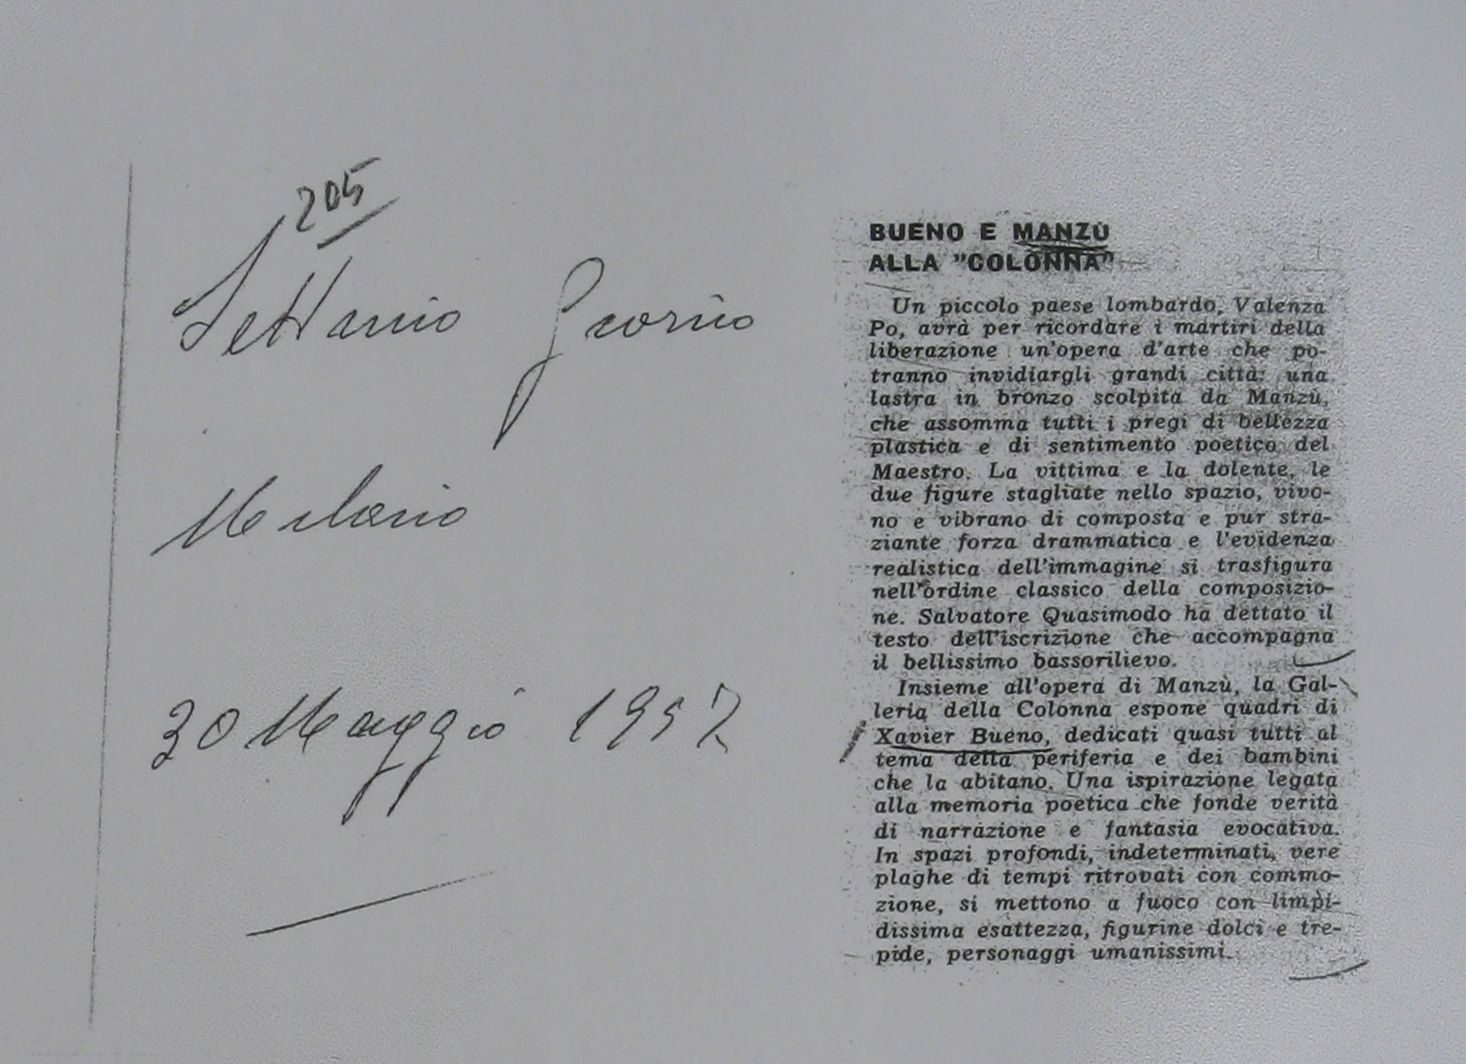 205
Settimo Giorno
Milano
30 Maggio 1957
BUENO E MANZÙ
ALLA "COLONNA"
Un piccolo paese lombardo, Valenza
Po, avrà per ricordare i martiri della
liberazione un'opera d'arte che po-
tranno invidiargli grandi città: una
lastra in bronzo scolpita da Manzù,
che assomma tutti i pregi di bellezza
plastica e di sentimento poetico del
Maestro. La vittima e la dolente, le
due figure stagliate nello spazio, vivo-
no e vibrano di composta e pur stra-
ziante forza drammatica e l'evidenza
realistica dell'immagine si trasfigura
nell'ordine classico della composizio-
ne. Salvatore Quasimodo ha dettato il
testo dell'iscrizione che accompagna
il bellissimo bassorilievo.
Insieme all'opera di Manzù, la Gal-
leria della Colonna espone quadri di
Xavier Bueno, dedicati quasi tutti al
tema della periferia e dei bambini
che la abitano. Una ispirazione legata
alla memoria poetica che fonde verità
di narrazione e fantasia evocativa.
In spazi profondi, indeterminati, vere
plaghe di tempi ritrovati con commo-
zione, si mettono a fuoco con limpi-
dissima esattezza, figurine dolci e tre-
pide, personaggi umanissimi.